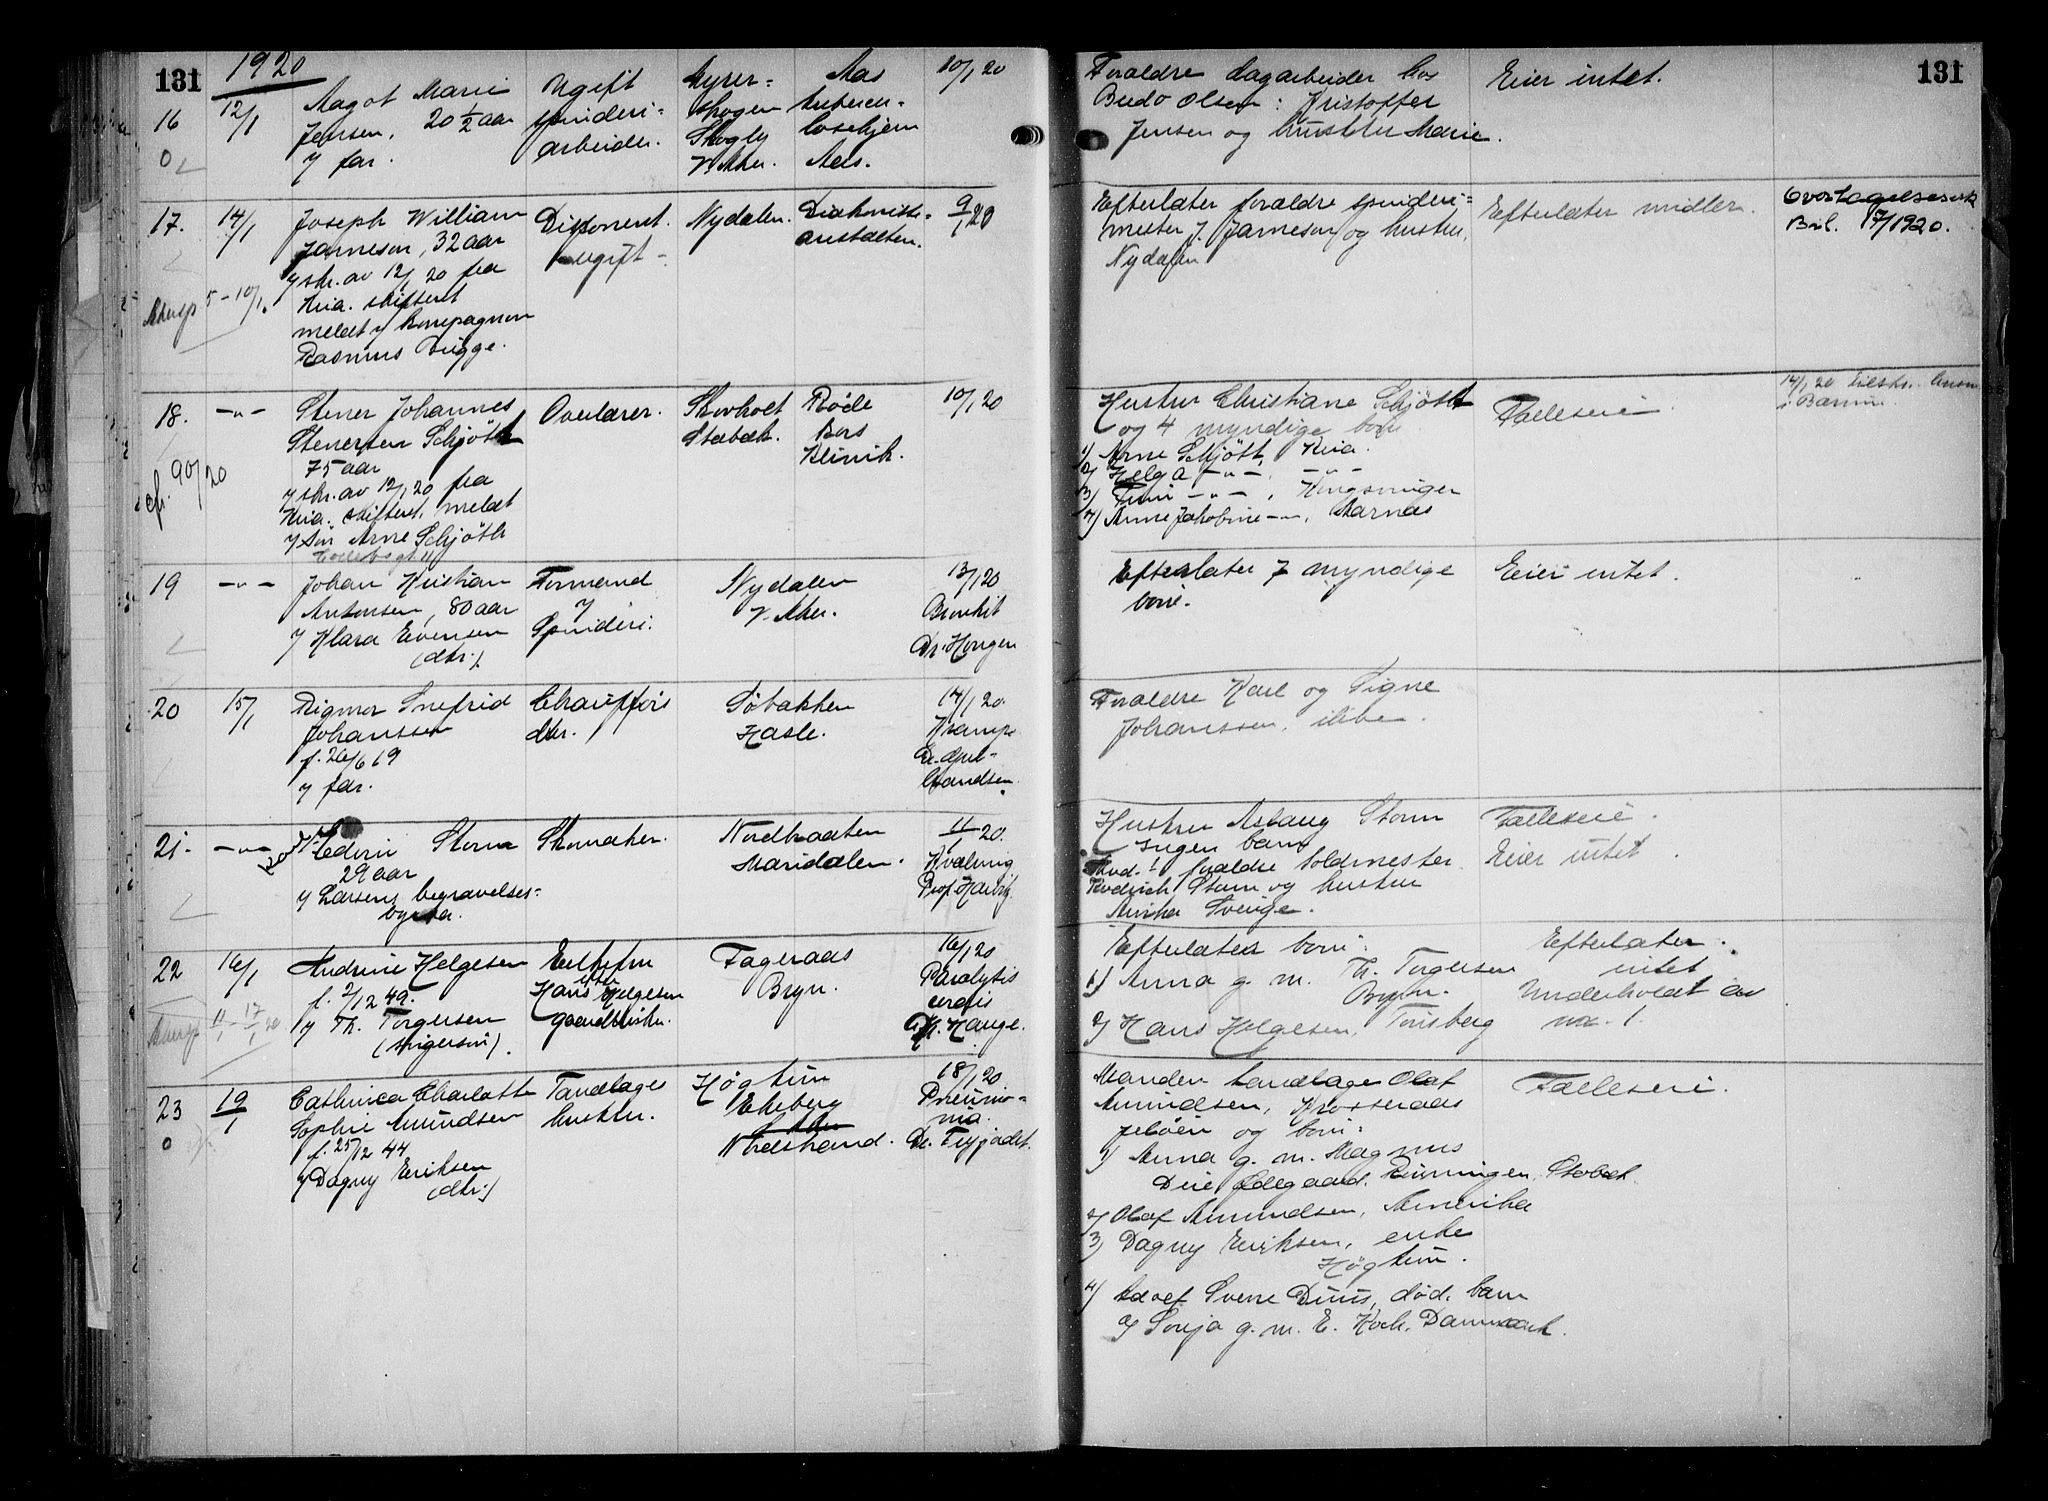 131
1920
131
16
12/1
Aagot Marie
Jensen, 20 1/2 aar
v/ far.
Ugift
spinderi-
arbeider.
Myrer-
skogen
Skogly
V. Aker.
Aas
tubercu-
losehjem
Aas.
10/1 20
Forældre dagarbeider hos
Olsen: Kristoffer
Jensen og hustru Marie.
Eier intet.
17.
14/1
Joseph William
Jameson, 32 aar
v/ skr. av 12/1 20 fra
Kria. skifteret
meldt v/ kompagnon
Rasmus Brigge.
Disponent.
ugift
Nydalen.
Diakonisse-
anstalten.
9/1 20
Efterlater forældre spinderi-
mester J. Jameson og hustru,
Nydalen
Efterlater midler.
Bril. 17/1 1920.
5 - 10/1
18.
-"-
Stener Johannes
Stenersen Schjött
75 aar
v/ skr. av 12/1 20 fra
Kria. skifteret, meldt
v/ søn Arne Schjött
Overlærer.
Skovholt
Stabæk.
Røde
Kors
Klinik.
10/1 20
cfr. 90/20
Hustru Christiane Schjött
og 4 myndige børn
1) Arne Schjött, Kria.
2) Helga -"-, -"-
3) -"-, Kongsvinger
4) Anne Jakobine -"-, Aarnes
Fælleseie
14/1 20
i Bærum
19
-"-
Johan Kristian
Antonsen, 80 aar
v/ Klara Evensen
(dtr.)
Formand
v/
Spinderi.
Nydalen
V. Aker.
13/1 20
Bronkit
Dr. Hougen
Efterlater 7 myndige
børn.
Eier intet.
20
15/1
Rigmor Snefrid
Johanssen
f. 26/6 19
v/ far.
Chaufførs
dtr.
Søbakken
Hasle.
14/1 20.
Krampe
Forældre Karl og Signe
Johanssen, ikke
21.
-"-
Edvin Storm
29 aar
v/ Larsens begravelses-
byraa.
Skomaker.
Nordbraaten
Maridalen.
11/1 20.
Kvælning
Prof. Harbitz
Hustru Aslaug Storm
Ingen barn
forældre toldmester
Storm og hustru
Sverige.
Fælleseie.
Eier intet
22
16/1
Andrine Helgesen
f. 2/12 49.
v/ Th. Torgersen
(svigersøn).
Enkefru
efter
Hans Helgesen
gaardbruker.
Fageraas
Bryn.
16/1 20
Paralysis
cordis
Hauge.
11/1 - 17/1 20
Efterlater børn:
1) Anna g. m. Th. Torgersen
Bryn.
2) Hans Helgesen, Tønsberg
Efterlater
intet
Underholdt av
no. 1
23
19/1
Cathinca Charlotte
Sophie Amundsen
f. 25/12 44
v/ Dagny Eriksen
(dtr.)
Tandlæges
hustru.
Høgtun
Ekeberg
Nordstrand.
18/1 20
Pneumo-
nia.
Manden tandlæge Olaf
Amundsen, Krosseraas
Jeløen og børn:
1) Anna g. m. Magnus
Due Ødegaard. Stabæk.
2) Olaf Amundsen, Amerika
3) Dagny Eriksen, enke
Høgtun.
4) Sverre Duus, død. barn
a) Sonja g. m. E. Koch. Danmark.
Fælleseie.